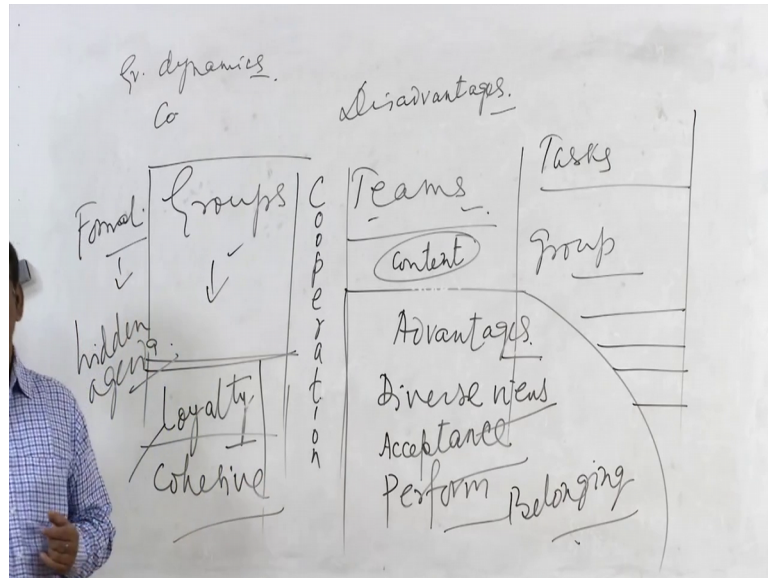 Gr. dynamics.
Co
Disadvantages.
Formal.
hidden
agenda.
Groups
Loyalty
Cohesive
Cooperation
Teams.
Content
Advantages.
Diverse views
Acceptance
Perform
Belonging
Tasks
Group